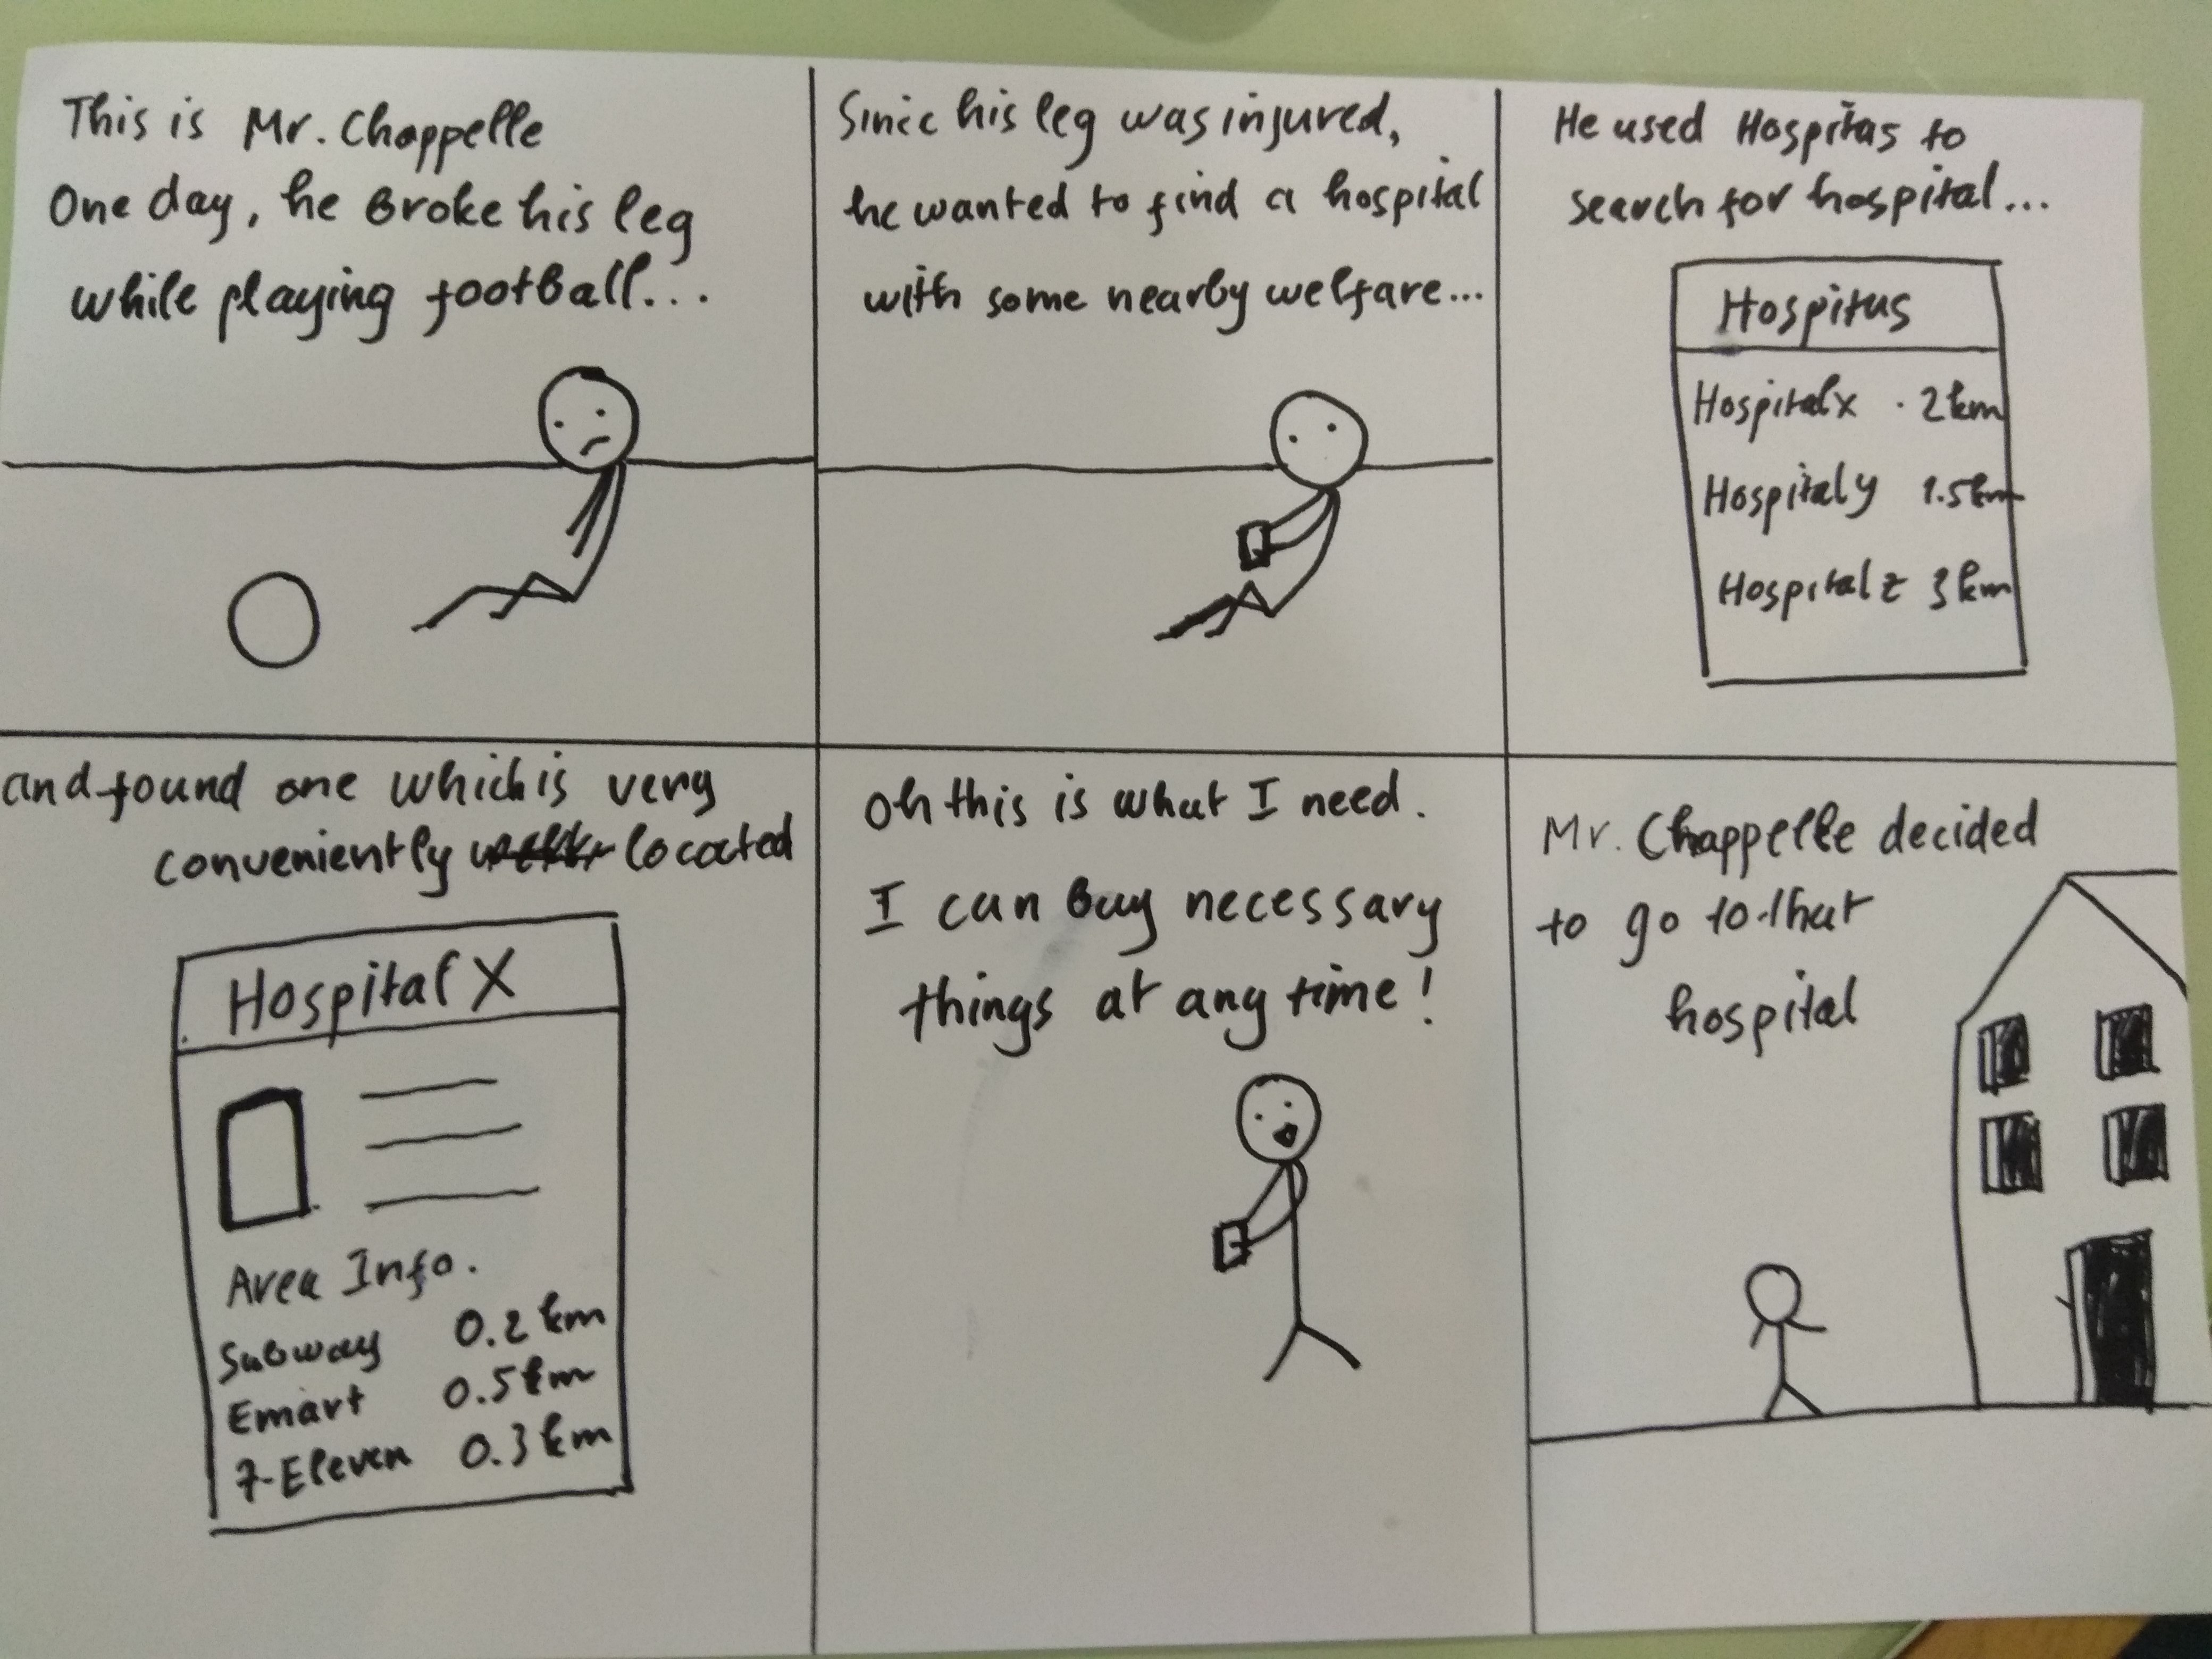 This is Mr. Chappelle
One day, he broke his leg
while playing football...
Since his leg was injured,
he wanted to find a hospital
with some nearby welfare...
He used Hospitas to
search for hospital...
Hospitas
Hospital x . 2km
Hospital y 1.5km
Hospital z 3km
and found one which is very
conveniently located
Hospital X
Area Info.
Subway 0.2km
Emart 0.5km
7-Eleven 0.3km
Oh this is what I need.
I can buy necessary
things at any time!
Mr. Chappelle decided
to go to that
hospital